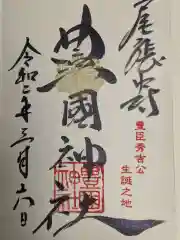 尾張中村
豊臣秀吉公
生誕之地
豊國神社
令和二年三月十八日